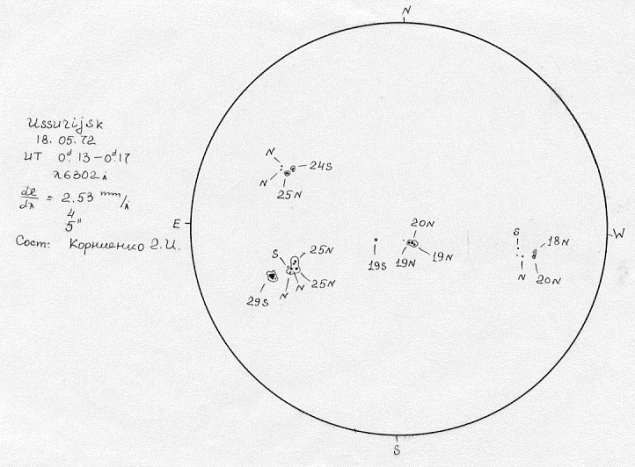 N
Ussurijsk
18.05.72
UT 0ᵈ.13–0ᵈ.17
λ6302Å
dl/dλ = 2.53 mm/Å
4
5"
Сост: Корниенко Г.И.
E
W
S
N
N
24S
25N
S
25N
25N
N
N
29S
19S
20N
19N
19N
S
18N
N
20N